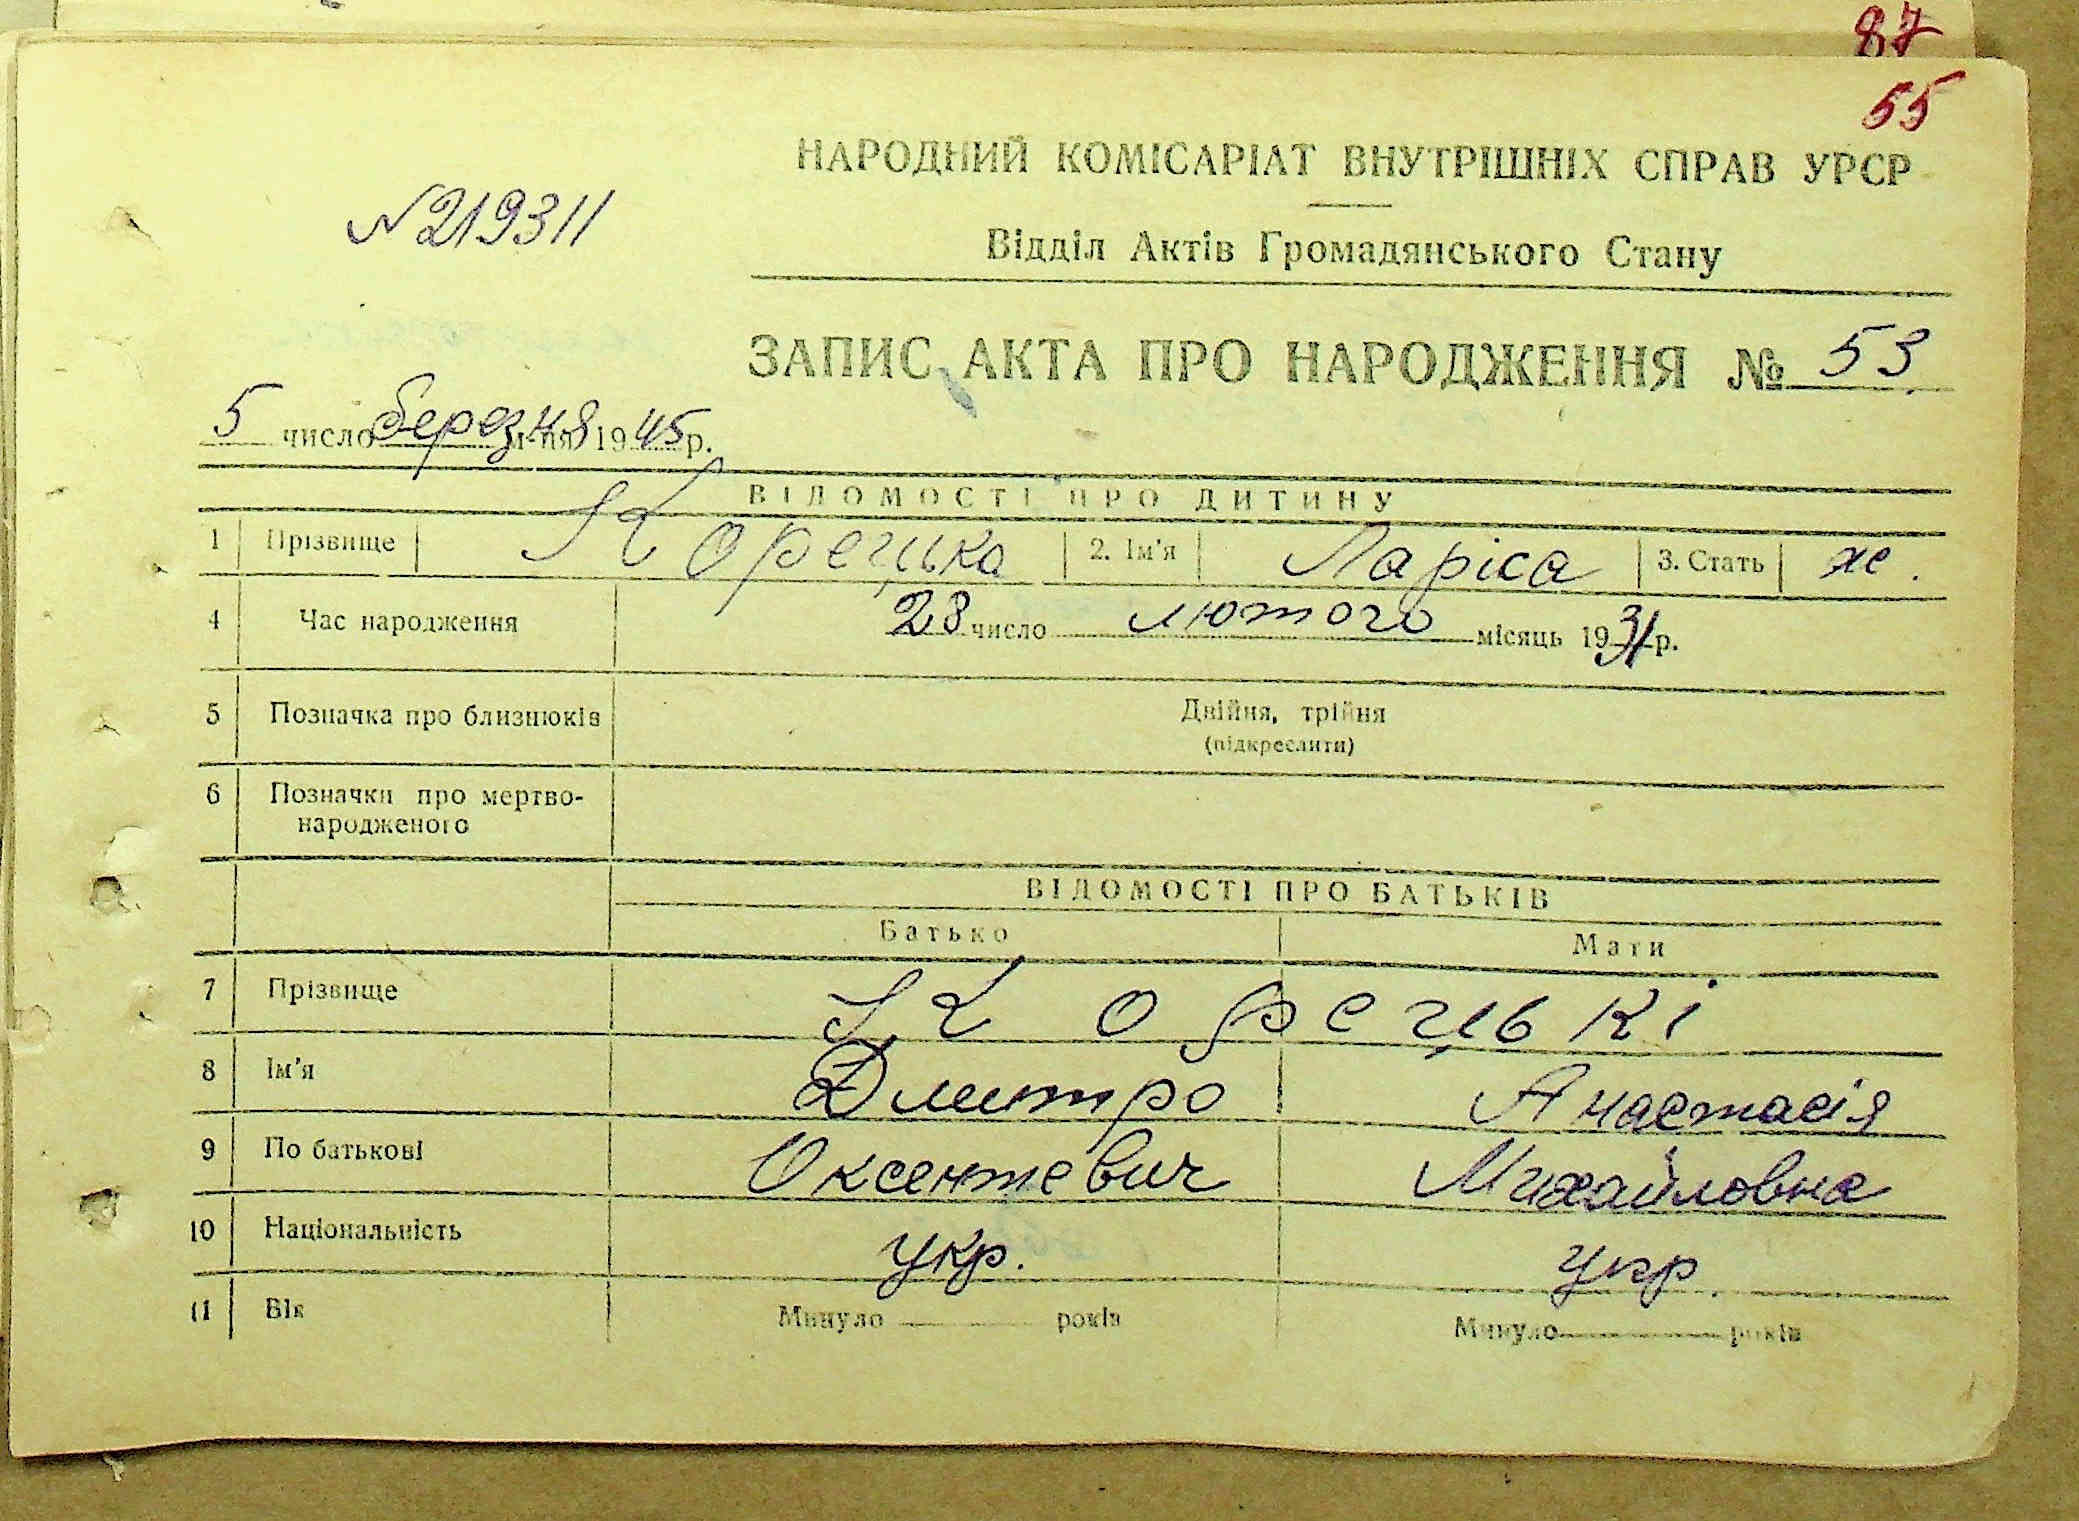 87
55
НАРОДНИЙ КОМІСАРІАТ ВНУТРІШНІХ СПРАВ УРСР
№ 219311
Відділ Актів Громадянського Стану
ЗАПИС АКТА ПРО НАРОДЖЕННЯ № 53
5 число березня м-ця 1945 р.
ВІДОМОСТІ ПРО ДИТИНУ
1 Прізвище Корецька 2. Ім'я Ларіса 3. Стать ж.
4 Час народження 28 число лютого місяць 1931 р.
5 Позначка про близнюків Двійня, трійня
(підкреслити)
6 Позначки про мертво-
народженого
ВІДОМОСТІ ПРО БАТЬКІВ
Батько Мати
7 Прізвище Корецькі
8 Ім'я Дмитро Анастасія
9 По батькові Оксентевич Михайловна
10 Національність укр. укр.
11 Вік Минуло років Минуло років